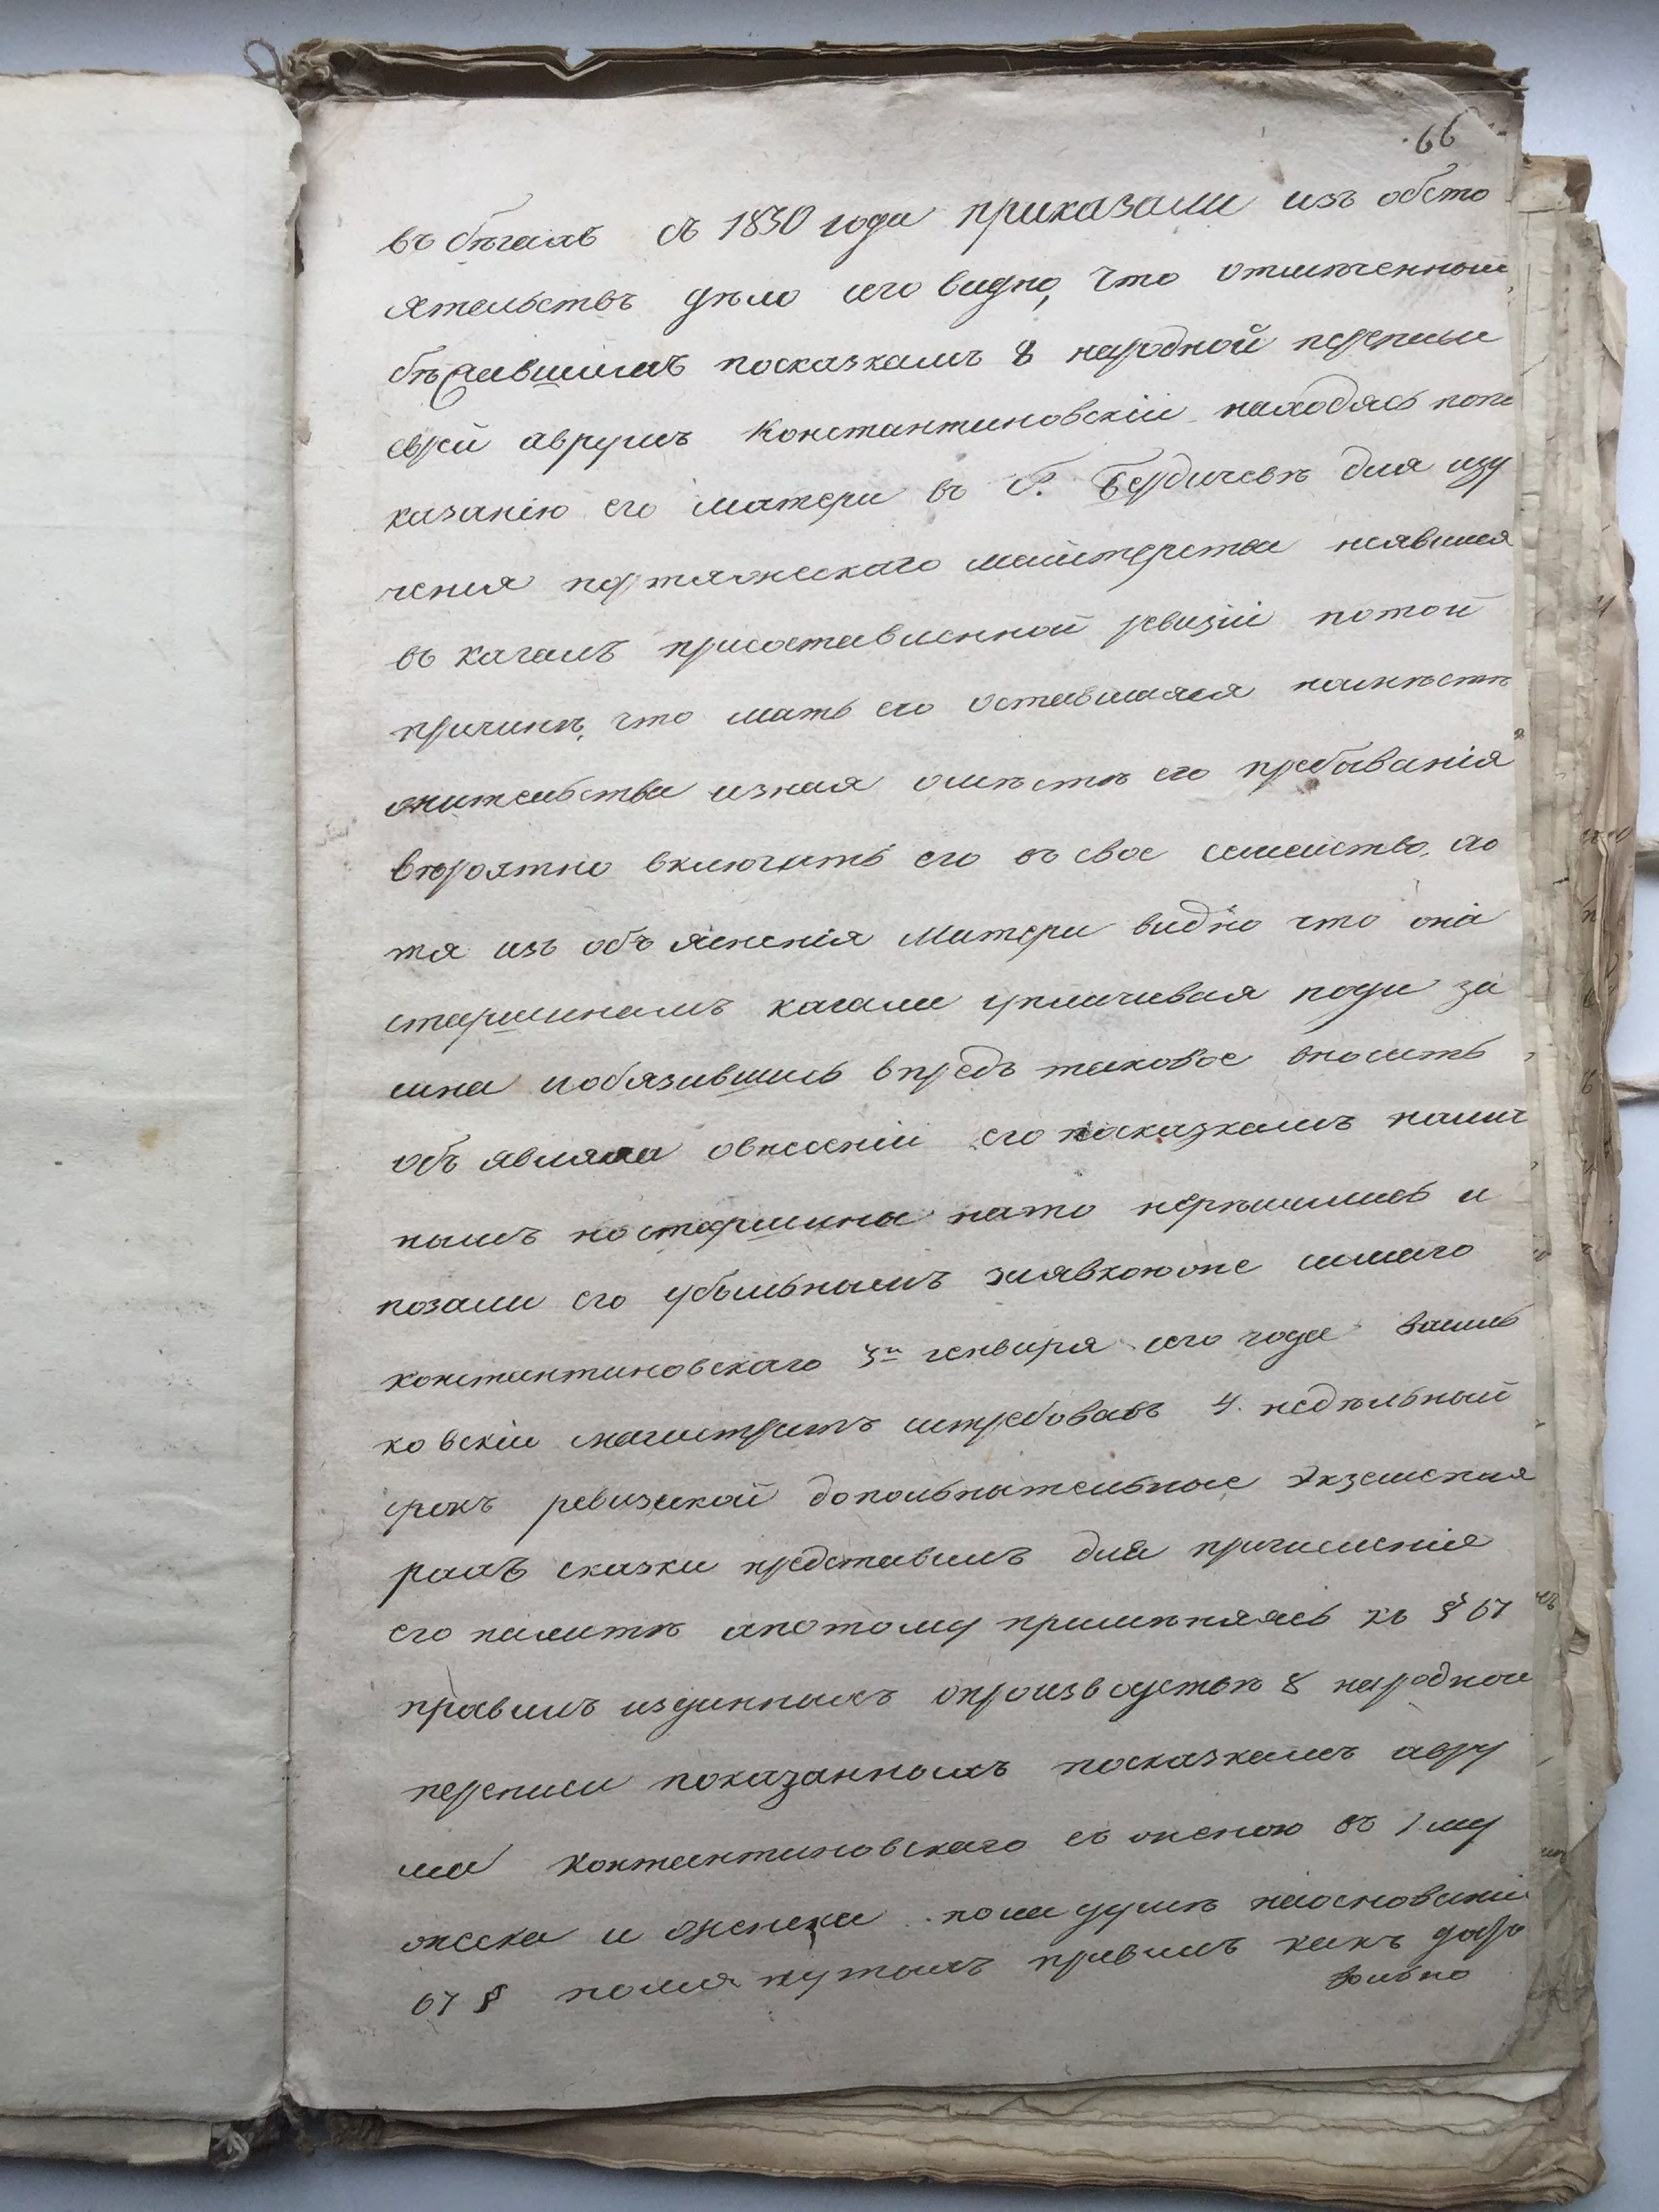 66
въ бѣгахъ съ 1830 года приказали изъ обсто
ятельствъ дѣло сего видно, что отмѣченный
бѣжавшимъ посказкамъ 8 народной переписи
еврей аврумъ Константиновскій находясь попо
казанію его матери въ г. Бердичевѣ для изу
ченія портняжескаго маистерства неявился
въ кагалъ присоставленной ревизіи потой
причинѣ, что мать его оставшаяся намѣстѣ
жительства изная омѣстѣ его пребыванія
вѣроятно включать его въ свое семейство, хо
тя изъ объясненія Матери видно что она
старшинамъ кагала уплачивая пода за
сына иобязавшись впредь таковое вносить
объявляла овнесеніи его посказкамъ налич
нымъ но старшины нато нерѣшились и
позали его убыльнымъ заявкоюже самаго
константиновскаго 3го генваря сего года Василь
ковскій магистратъ истребовавъ 4. недѣльный
срокъ ревизской дополнительные Экземпля
рахъ сказки представилъ для причисленія
его налитѣ апотому примѣняясь къ § 67
правилъ изданныхъ опроизводствѣ 8 народной
переписи показанныхъ посказкамъ авру
ма Контантиновскаго съ женою въ 1 му
жеска и женска пола душѣ наосновани
67 § помянутыхъ правилъ какъ добро
вольно